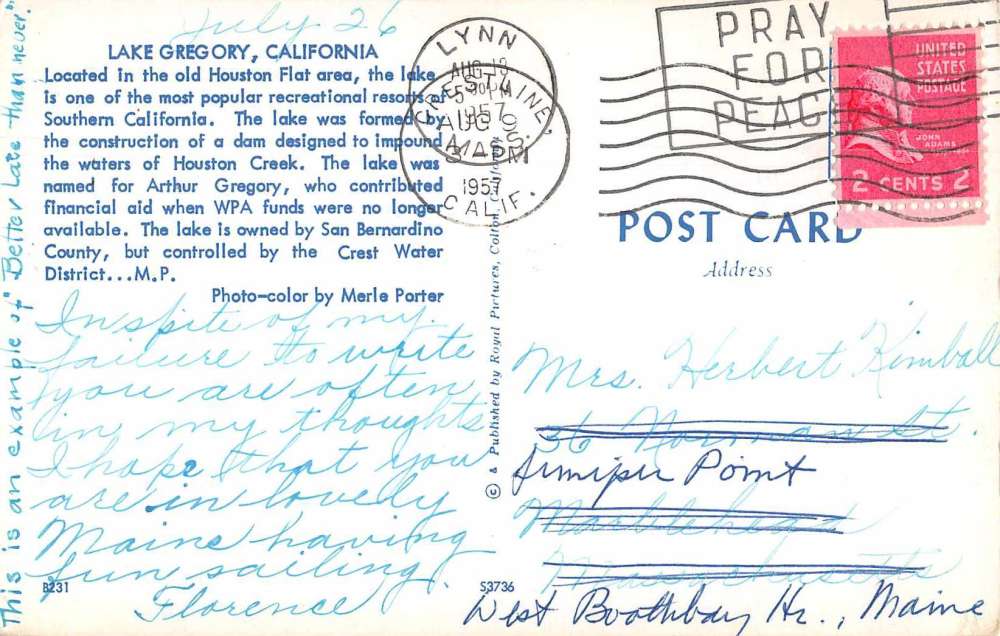 July 26
LAKE GREGORY, CALIFORNIA
Located in the old Houston Flat area, the lake
is one of the most popular recreational resorts of
Southern California. The lake was formed by
the construction of a dam designed to impound
the waters of Houston Creek. The lake was
named for Arthur Gregory, who contributed
financial aid when WPA funds were no longer
available. The lake is owned by San Bernardino
County, but controlled by the Crest Water
District...M.P.
Photo-color by Merle Porter
In spite of my
failure to write
you are often
in my thoughts
I hope that you
are in lovely
Maine having
fun sailing.
Florence
This is an example of "Better Late than never".
B231
S3736
© & Published by Royal Pictures, Colton, California
LYNN
AUG 13
5 30 PM
1957
MASS.
CRESTLINE,
AUG 9
3 - PM
1957
CALIF.
PRAY
FOR
PEACE
UNITED
STATES
POSTAGE
JOHN
ADAMS
2 CENTS 2
POST CARD
Address
Mrs. Herbert Kimball
36 Norman St.
Juniper Point
Marblehead
Massachusetts
West Boothbay Hr., Maine